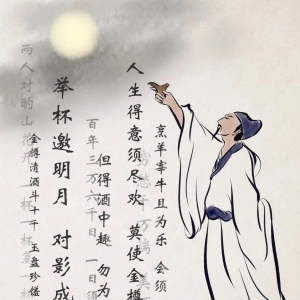 烹羊宰牛且为乐 会须
穷愁千万端 美
人生得意须尽欢 莫使金樽
但得酒中趣 勿为
百年三万六千日 一日须
举杯邀明月 对影成
金樽清酒斗十千 玉盘珍馐
两人对酌山花开 一杯一杯复